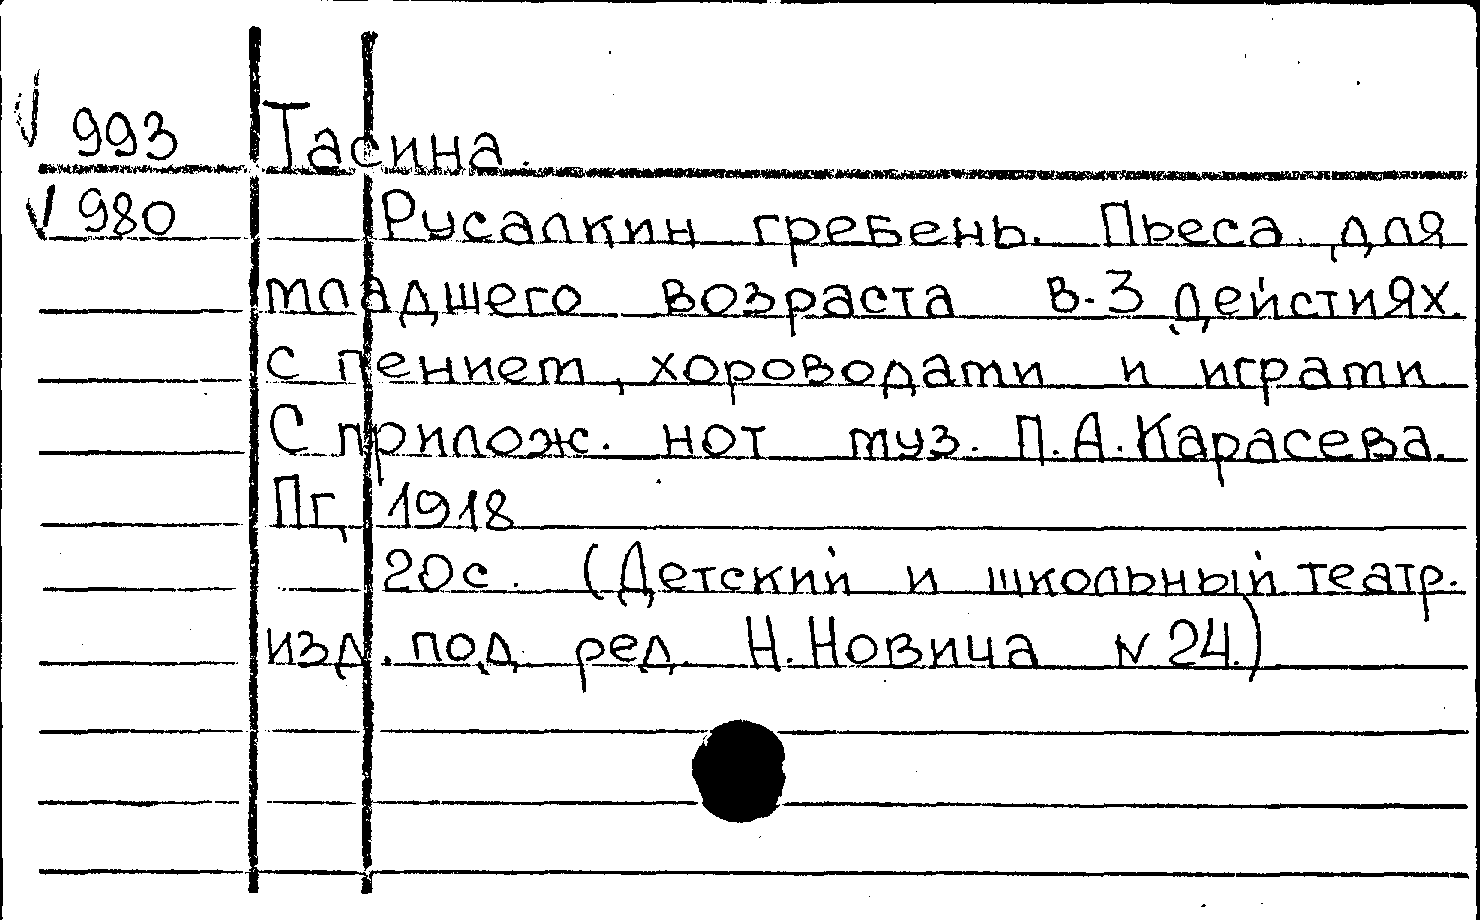 V 993 Тасина.
V 980 Русалкин гребень. Пьеса для
младшего возраста в 3 дейстиях
с пением, хороводами и играми
С прилож. нот муз. П.А.Карасева.
Пг, 1918
20с. (Детский и школьный театр.
изд. под ред. Н.Новича N 24.)